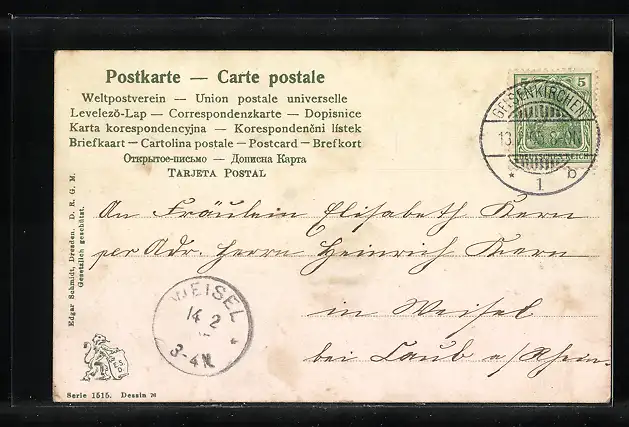 Postkarte — Carte postale
Weltpostverein — Union postale universelle
Levelező-Lap — Correspondenzkarte — Dopisnice
Karta korespondencyjna — Korespondenční lístek
Briefkaart — Cartolina postale — Postcard — Brefkort
Открытое-письмо — Дописна Карта
TARJETA POSTAL
5
GELSENKIRCHEN
* 1 b
An Fräulein Elisabeth Kern
per Adr. Herrn Heinrich Kern
in Weisel
bei Caub a/Rhein.
WEISEL
14 2
3-4N
Edgar Schmidt, Dresden. D. R. G. M.
Gesetzlich geschützt.
Serie 1515. Dessin